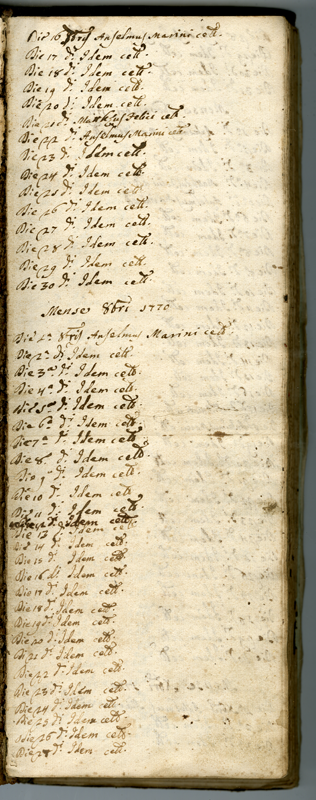 Die 16 7bris Anselmus Marini cett.
Die 17 di. Idem cett.
Die 18 di. Idem cett.
Die 19 di. Idem cett.
Die 20 di. Idem cett.
Die 21 di. cett.
Die 22 di. Anselmus Marini cett.
Die 23 di. Idem cett.
Die 24 di. Idem cett.
Die 25 di. Idem cett.
Die 26 di. Idem cett.
Die 27 di. Idem cett.
Die 28 di. Idem cett.
Die 29 di. Idem cett.
Die 30 di. Idem cett.
Mense 8bri 1770
Die 8bris Anselmus Marini cett.
Die 2a di. Idem cett.
Die 3a di. Idem cett.
Die 4a di. Idem cett.
Die 5a di. Idem cett.
Die 6a di. Idem cett.
Die 7a di. Idem cett.
Die 8a di. Idem cett.
Die 9a di. Idem cett.
Die 10 di. Idem cett.
Die 11 di. Idem cett.
Die 12 di. Idem cett.
Die 13 di. Idem cett.
Die 14 di. Idem cett.
Die 15 di. Idem cett.
Die 16 di. Idem cett.
Die 17 di. Idem cett.
Die 18 di. Idem cett.
Die 19 di. Idem cett.
Die 20 di. Idem cett.
Die 21 di. Idem cett.
Die 22 di. Idem cett.
Die 23 di. Idem cett.
Die 24 di. Idem cett.
Die 25 di. Idem cett.
Die 26 di. Idem cett.
Die 27 di. Idem cett.